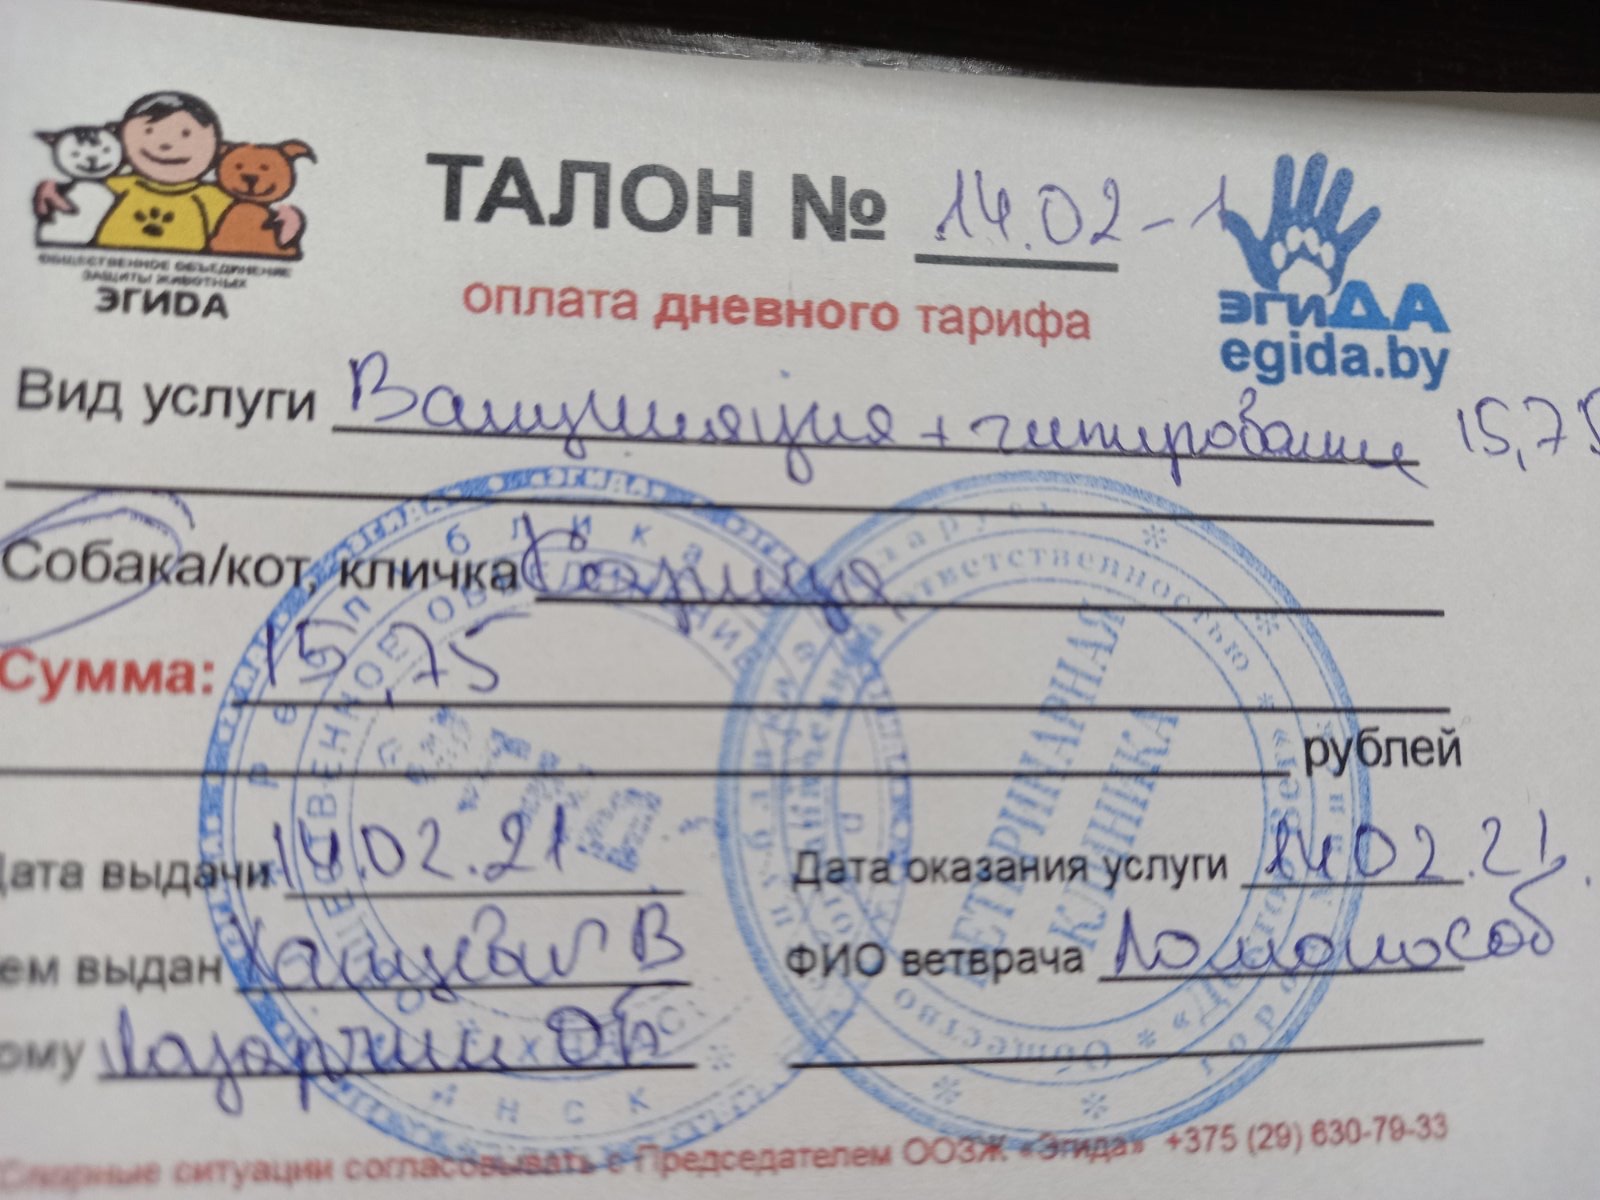 ТАЛОН № 14.02-1
ОБЩЕСТВЕННОЕ ОБЪЕДИНЕНИЕ
ЗАЩИТЫ ЖИВОТНЫХ
ЭГИДА
оплата дневного тарифа
эгиДА
egida.by
Вид услуги Вакцинация + чипирование 15,75
Собака/кот, кличка
Сумма: 15,75
рублей
Дата выдачи 14.02.21 Дата оказания услуги 14.02.21
ем выдан В ФИО ветврача Ломоносов
ому
Спорные ситуации согласовывать с Председателем ООЗЖ «Эгида» +375 (29) 630-79-33
ВЕТЕРИНАРНАЯ
КЛИНИКА